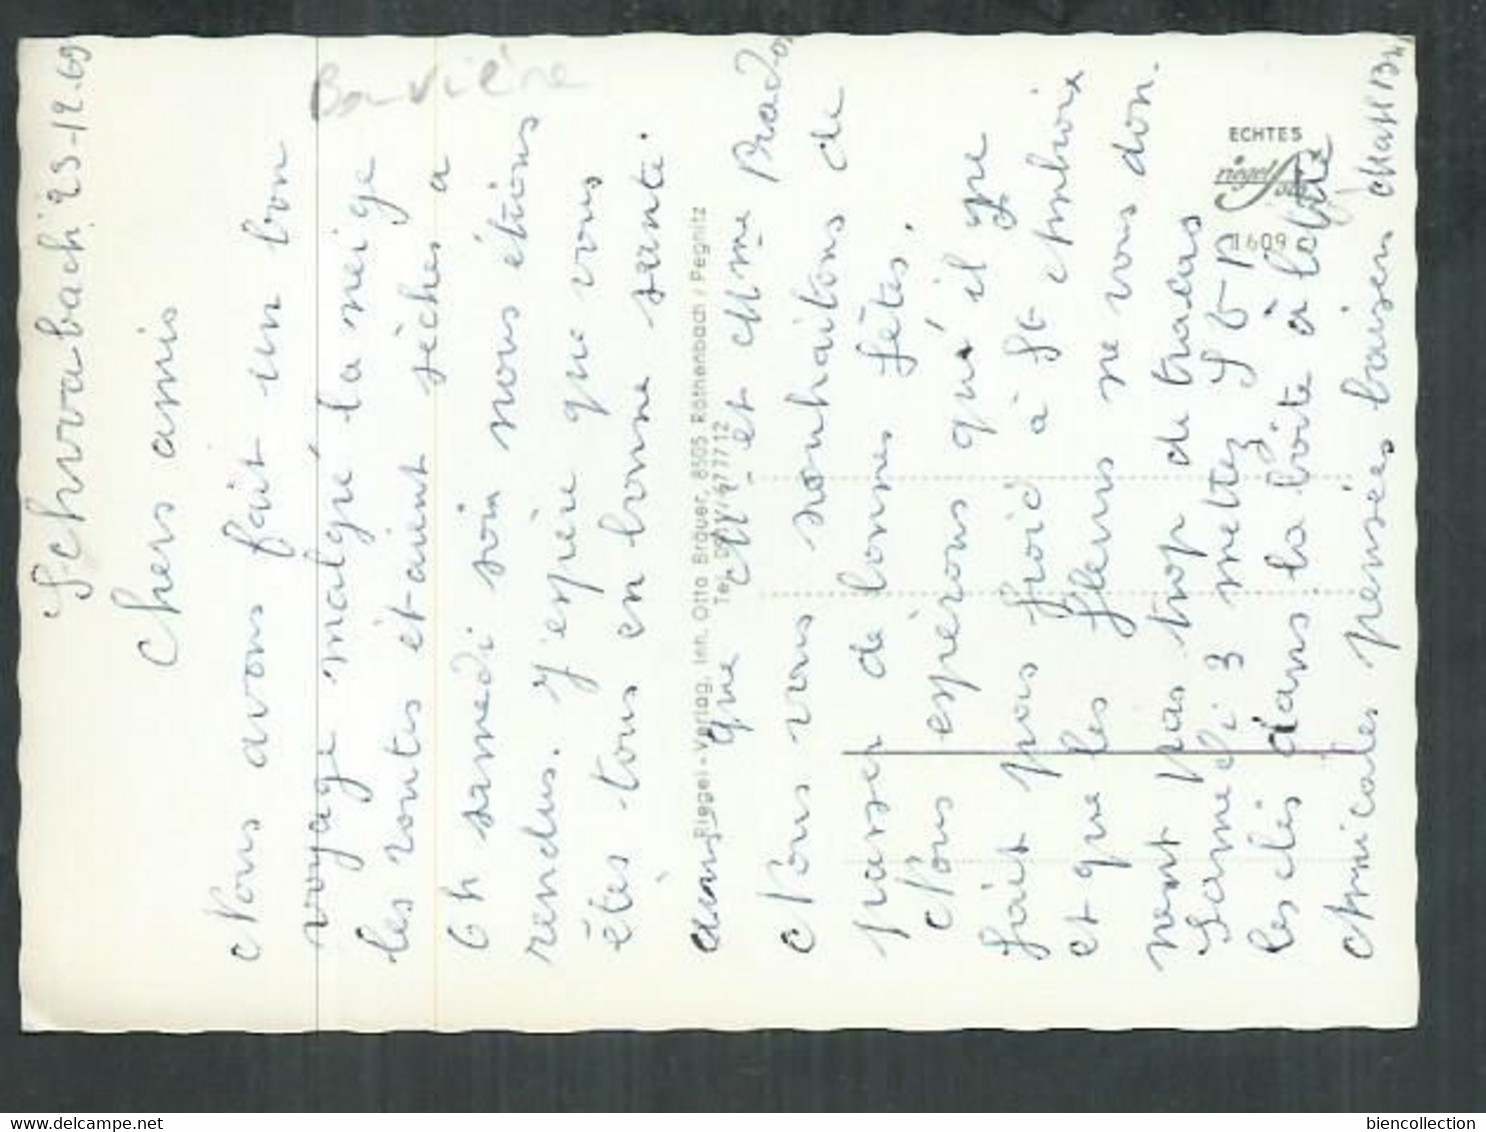 Schwabach 23-12.69
Chers amis
Nous avons fait un bon
voyage malgré la neige
les routes étaient sèches a
6h samedi soir nous étions
rendus. J'espère que vous
êtes tous en bonne santé.
ainsi que Mr et Mme Prado
Nous vous souhaitons de
passer de bonnes fêtes.
Nous espérons qu'il ne
fait pas froid à St Ambroix
et que les fleurs ne vous don.
nent pas trop de tracas
Samedi 3 mettez S V P
les clés dans la boîte à lettre
Amicales pensées baisers
Bavière
Riegel-Verlag, Inh. Otto Brauer, 8505 Röthenbach / Pegnitz
ECHTES
riegel
1609
www.delcampe.net
biencollection